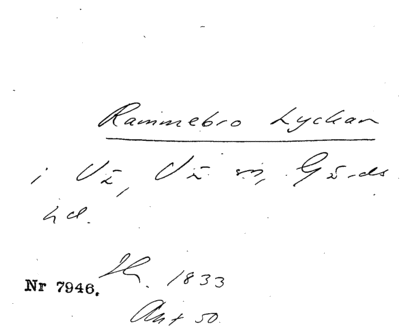 Rammebro Lyckan
i Vä, Vä sn, Gärds
hd.
Nr 7946. 1833
Akt 50.